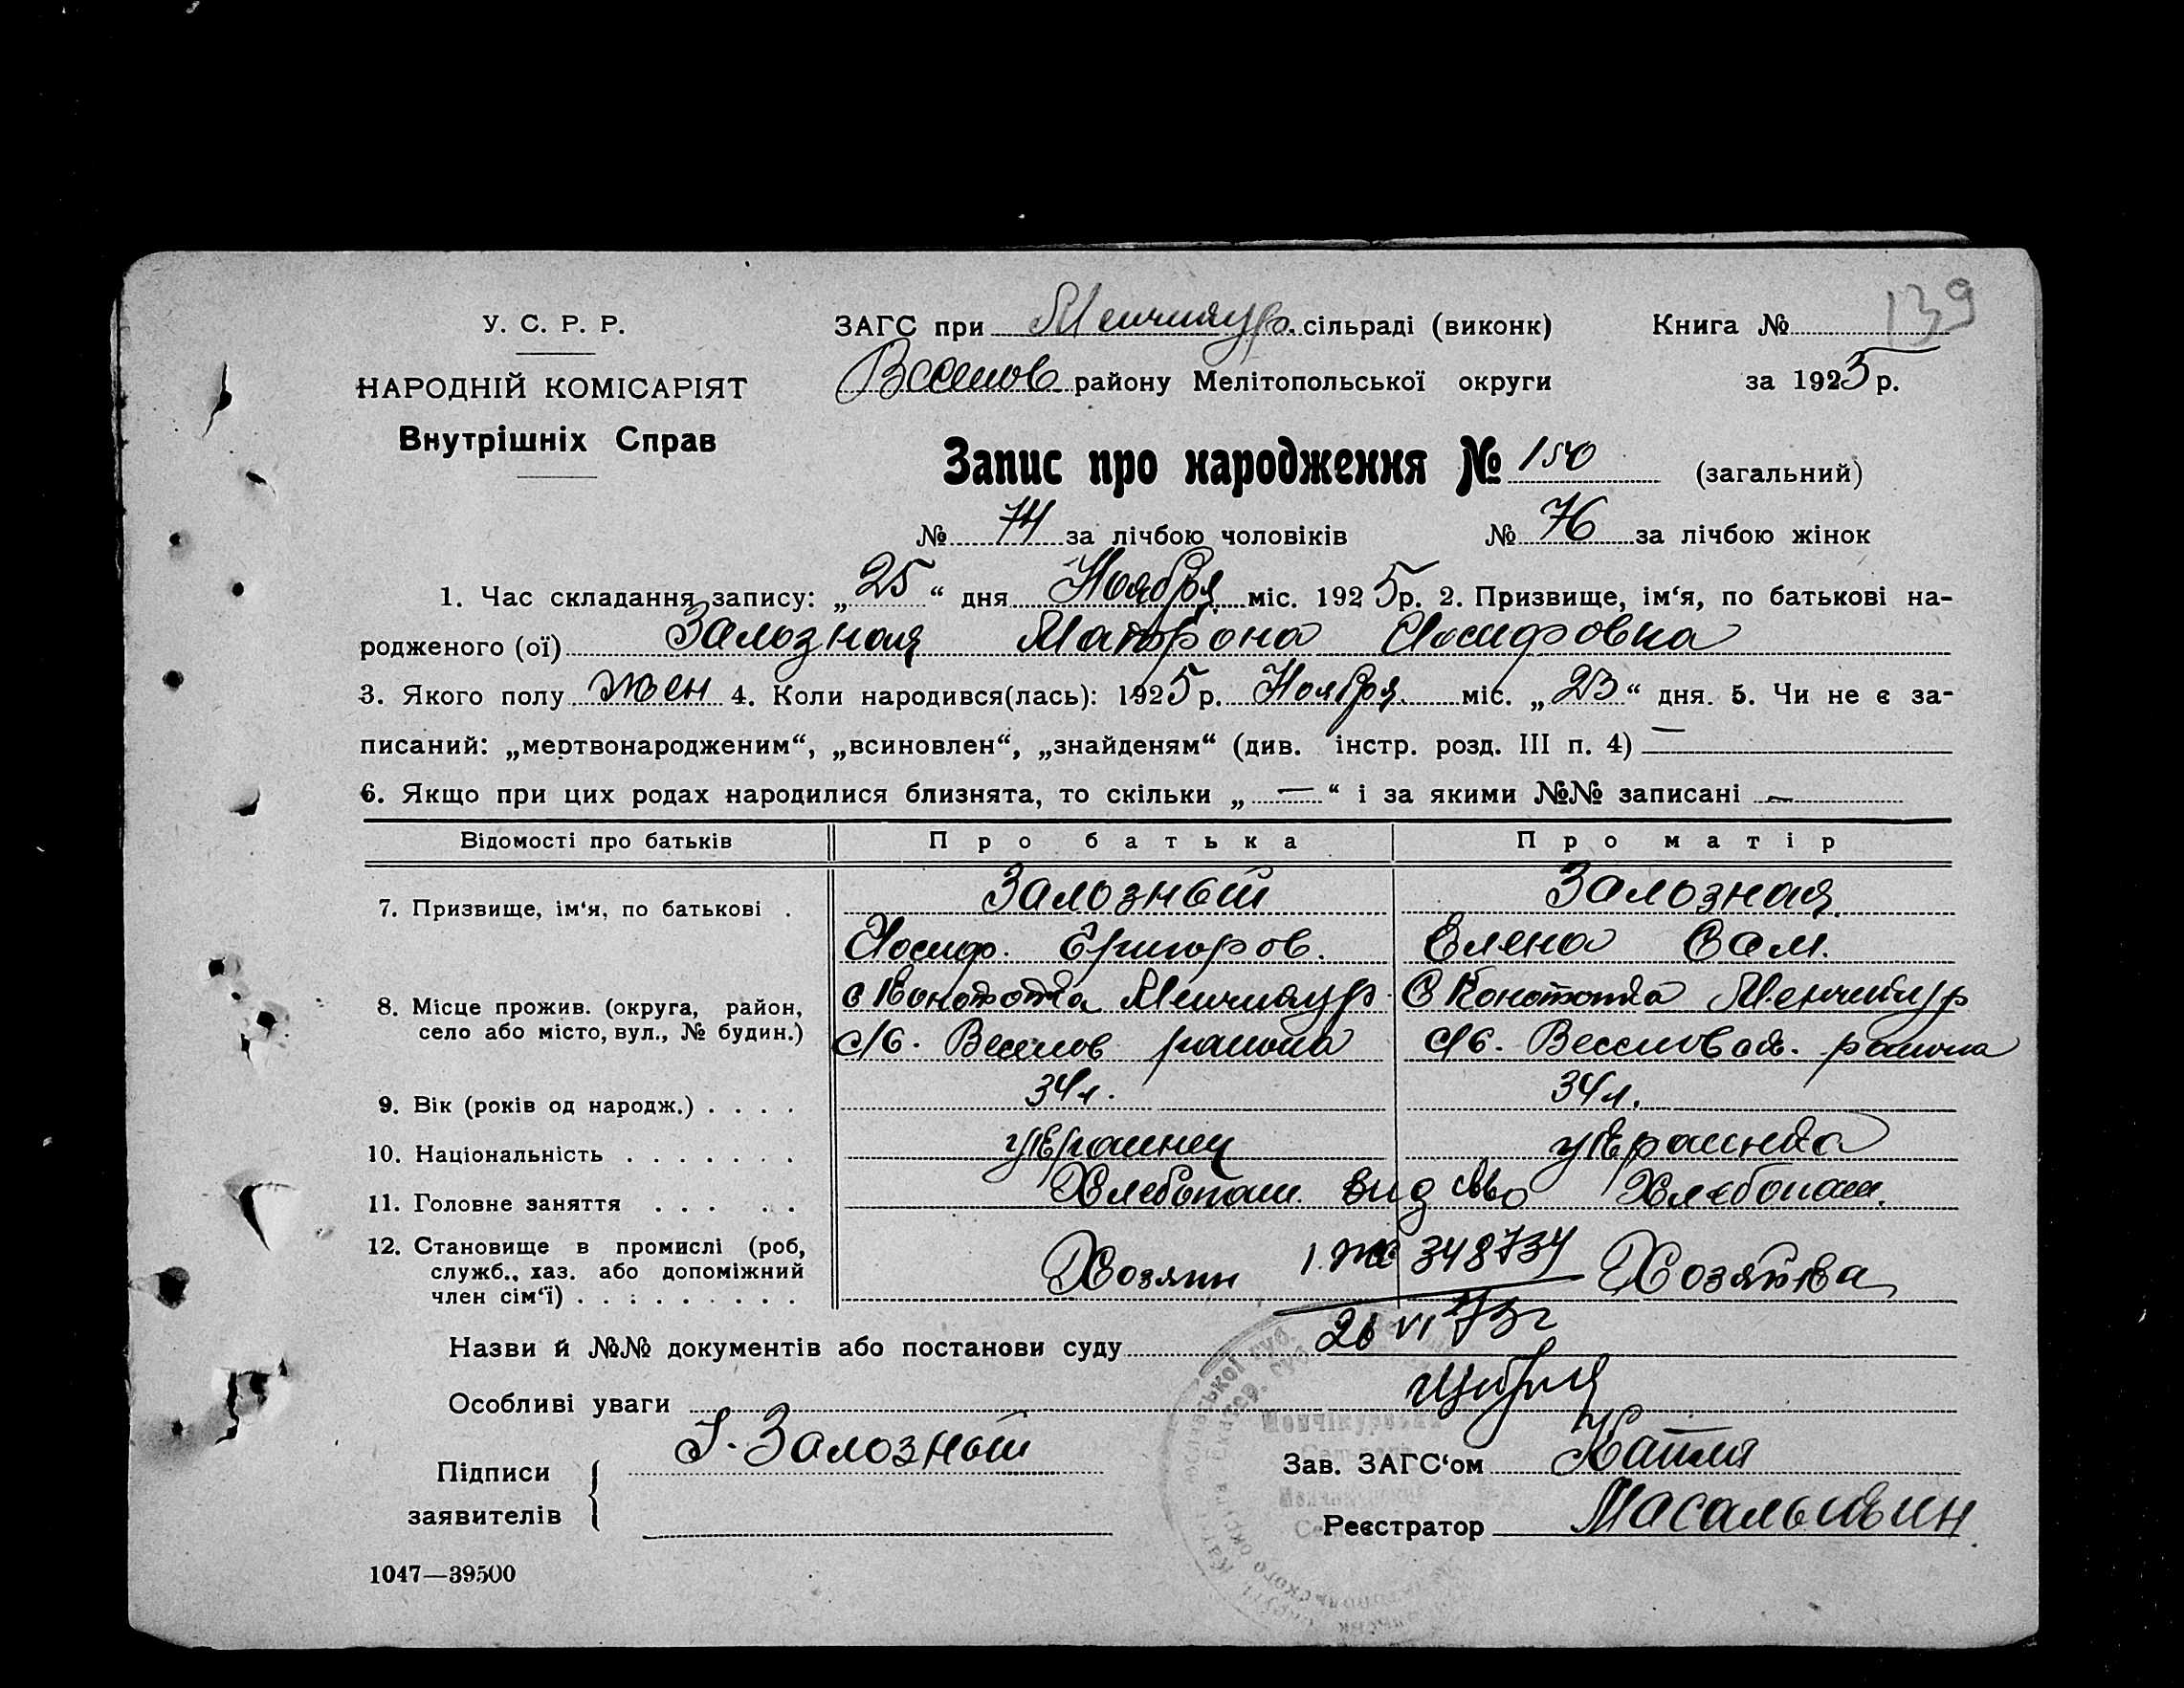 139
У. С. Р. Р.
ЗАГС при Менчикур. сільраді (виконк)
Книга №
НАРОДНІЙ КОМІСАРІЯТ
Веселов району Мелітопольської округи
за 1925 р.
Внутрішніх Справ
Запис про народження № 150 (загальний)
№ 74 за лічбою чоловіків № 76 за лічбою жінок
1. Час складання запису: „25“ дня Ноября міс. 1925 р. 2. Призвище, ім‘я, по батькові на-
родженого (ої) Залозная Матрона Иосифовна
3. Якого полу жен 4. Коли народився(лась): 1925 р. Ноября міс. „23“ дня. 5. Чи не є за-
писаний: „мертвонародженим“, „всиновлен“, „знайденям“ (див. інстр. розд. III п. 4) —
6. Якщо при цих родах народилися близнята, то скільки „—“ і за якими №№ записані —
Відомості про батьків Про батька Про матір
7. Призвище, ім‘я, по батькові . Залозный Залозная
Иосиф. Григоров. Елена Сам.
8. Місце прожив. (округа, район, с Конотопка Менчикур С Конотопка Менчикур
село або місто, вул., № будин.) с/с. Веселов района с/с. Веселовск. района
9. Вік (років од народж.) . . . . 34 л. 34 л.
10. Національність . . . . . . . украинец украинка
11. Головне заняття . . . . . Хлебопаш. вид свво Хлебопаш.
12. Становище в промислі (роб,
служб., хаз. або допоміжний Хозяин 1. ЖС 348734 Хозяйка
член сім‘ї) . . . . . . . . .
Назви й №№ документів або постанови суду 26 VI 73 г
Особливі уваги
Підписи заявителів И. Залозный
Зав. ЗАГС‘ом
Реєстратор Масалыкин
1047—39500